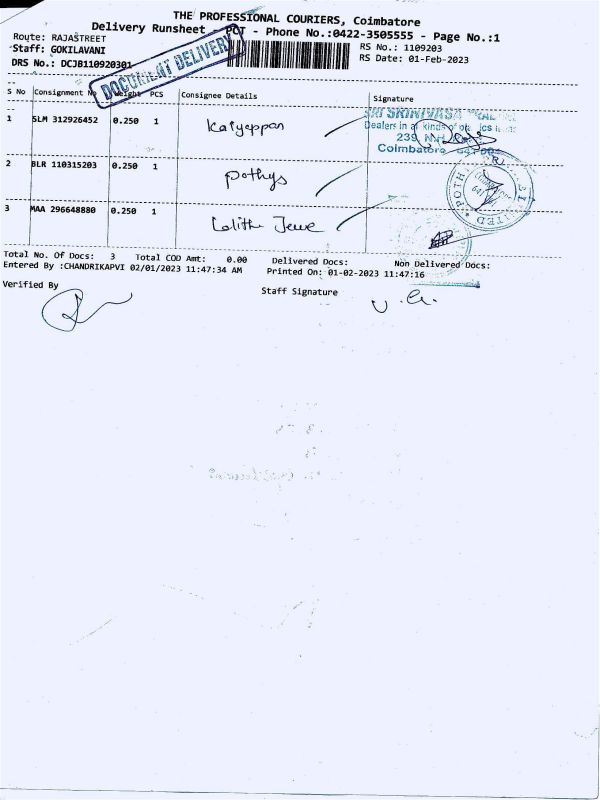 THE PROFESSIONAL COURIERS, Coimbatore
Delivery Runsheet - PCT - Phone No.:0422-3505555 - Page No.:1
Route: RAJASTREET
Staff: GOKILAVANI
DRS No.: DCJB110920301
DOCUMENT DELIVERY
RS No.: 1109203
RS Date: 01-Feb-2023
S No Consignment No Weight PCS Consignee Details Signature
1 SLM 312926452 0.250 1 Kaiyeppan
SRI SRINIVASA
Dealers in all kinds of
239, 
Coimbatore
2 BLR 110315203 0.250 1 pothys
POTHYS LIMITED
3 MAA 296648880 0.250 1 Lalitha Jewe
Total No. Of Docs: 3 Total COD Amt: 0.00 Delivered Docs: Non Delivered Docs:
Entered By :CHANDRIKAPVI 02/01/2023 11:47:34 AM Printed On: 01-02-2023 11:47:16
Verified By Staff Signature